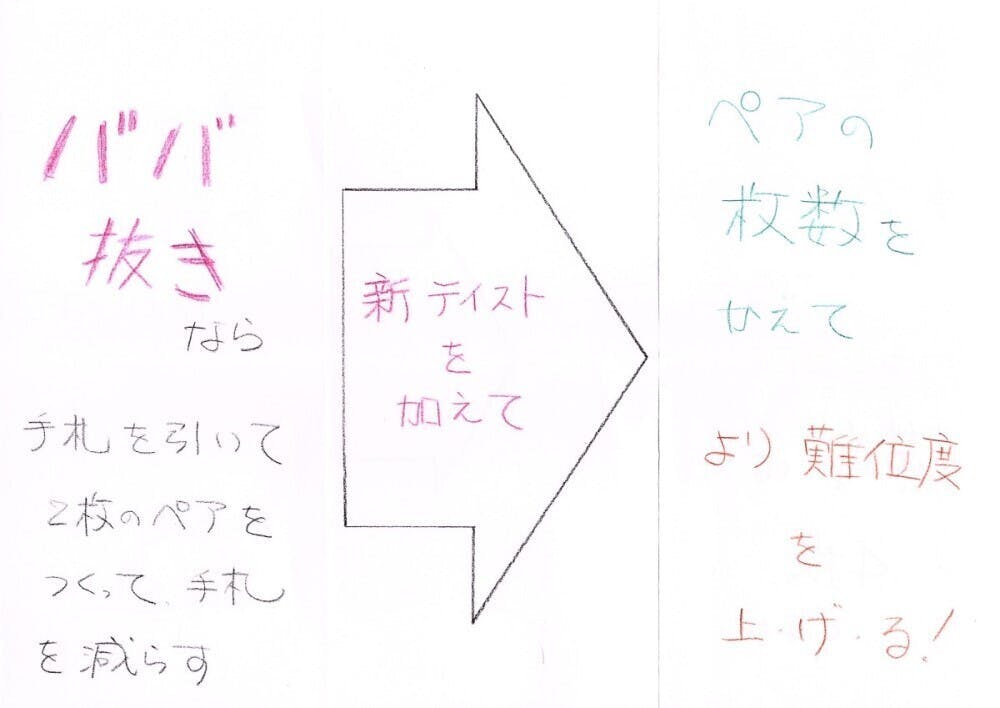 ババ
抜き
なら
手札を引いて
2枚のペアを
つくって、手札
を減らす
新テイスト
を
加えて
ペアの
枚数を
かえて
より難位度
を
上・げ・る!